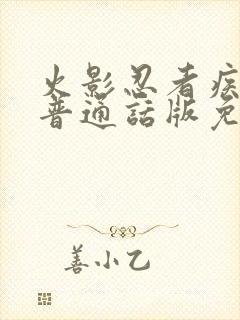 火影忍者疾
普通話版免
善小乙